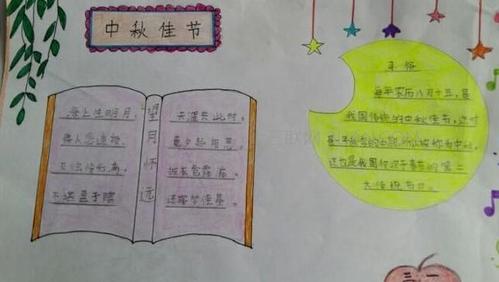 中秋佳节
海上生明月，
情人怨遥夜，
灭烛怜光满，
不堪盈手赠
望月怀远
天涯共此时。
竟夕起相思。
披衣觉露滋。
还寝梦佳期。
来历
每年农历八月十五，是
我国传统的中秋佳节。这时
是一年秋季的中期，所以被称为中秋。
这也是我国仅次于春节的第二
大传统节日。
三一